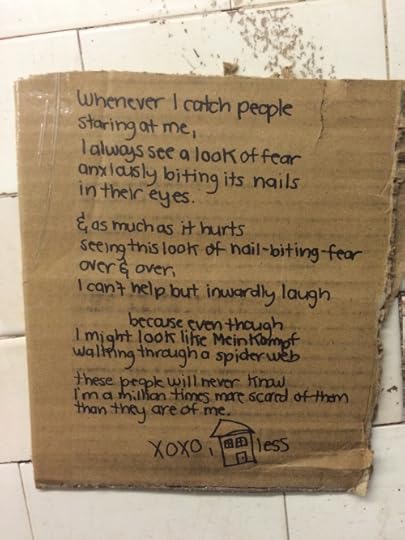 Whenever I catch people
staring at me,
I always see a look of fear
anxiously biting its nails
in their eyes.
& as much as it hurts
seeing this look of nail-biting-fear
over & over,
I can't help but inwardly laugh
because even though
I might look like Mein Kampf
walking through a spiderweb
these people will never know
I'm a million times more scared of them
than they are of me.
XOXO, less